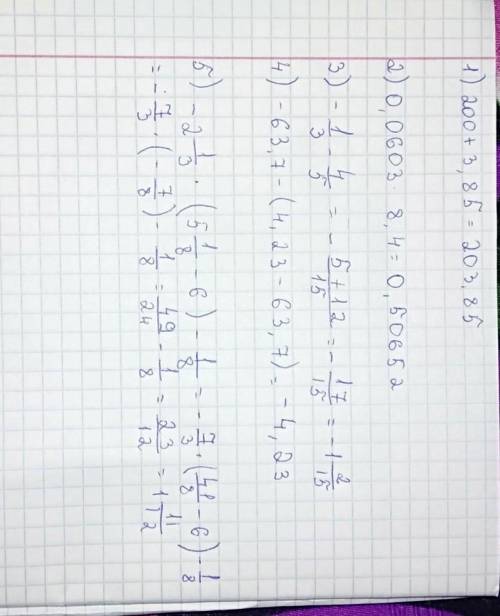 1) 200 + 3,85 = 203,85
2) 0,0603 · 8,4 = 0,50652
3) - 1/3 - 4/5 = - 5+12/15 = - 17/15 = -1 2/15
4) - 63,7 - (4,23 - 63,7) = - 4,23
5) - 2 1/3 · (5 1/8 - 6) - 1/8 = - 7/3 · (41/8 - 6) - 1/8
= - 7/3 · (- 7/8) - 1/8 = 49/24 - 1/8 = 23/12 = 1 11/12